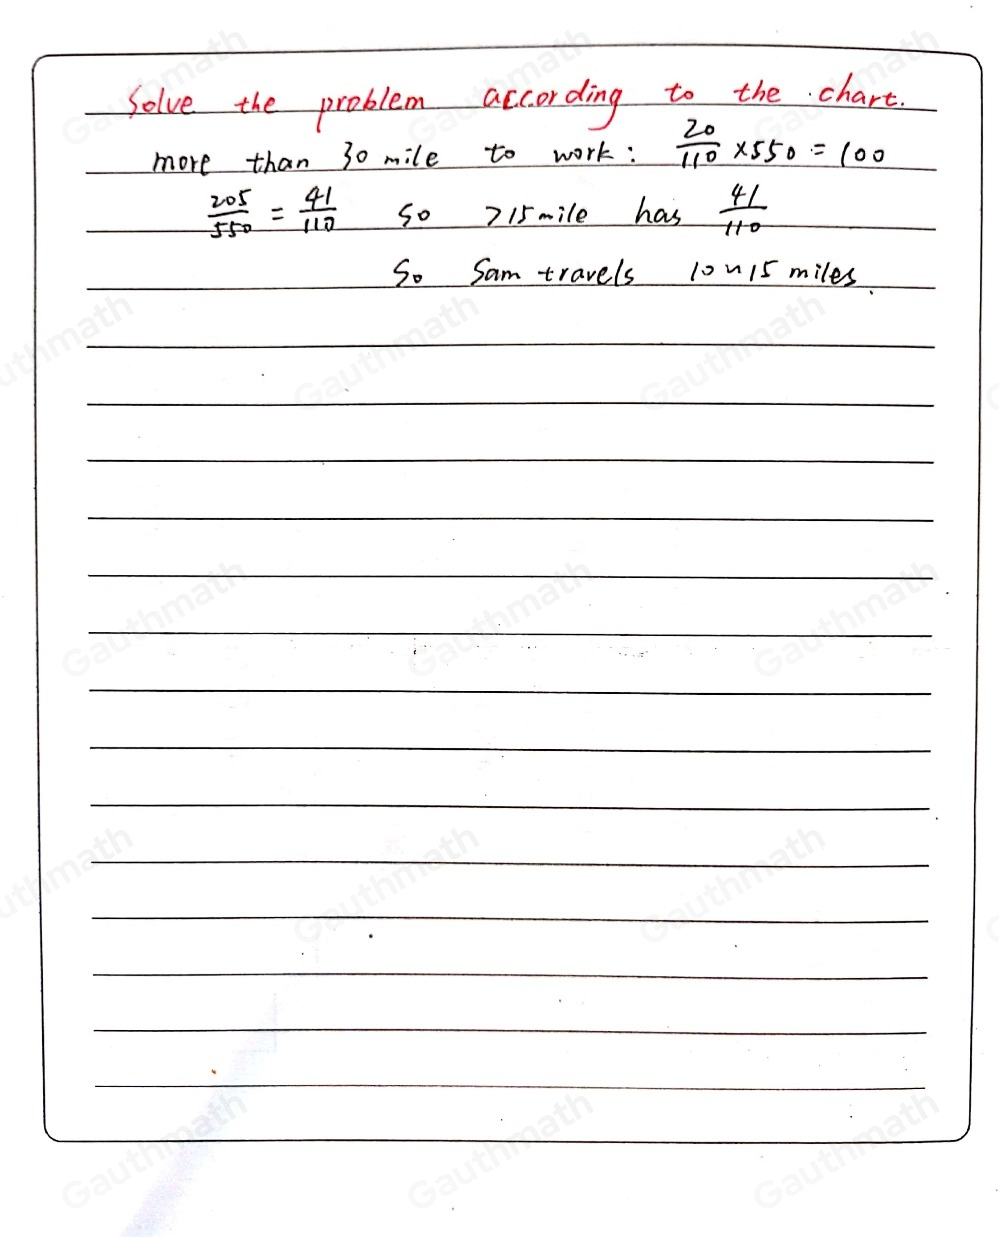 Solve the problem according to the chart.
more than 30 mile to work: 20/110 ×550 = 100
205/550 = 41/110 so >15mile has 41/110
So Sam travels 10~15 miles.
Gauthmath